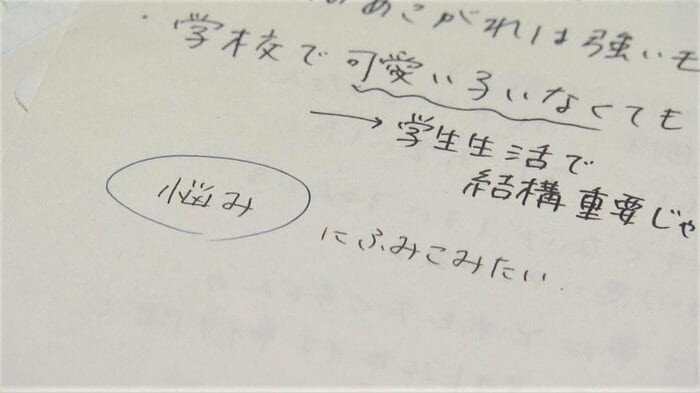 あこがれは強いも
・学校で可愛い子いなくても
→学生生活で
結構重要じゃ
悩み
にふみこみたい